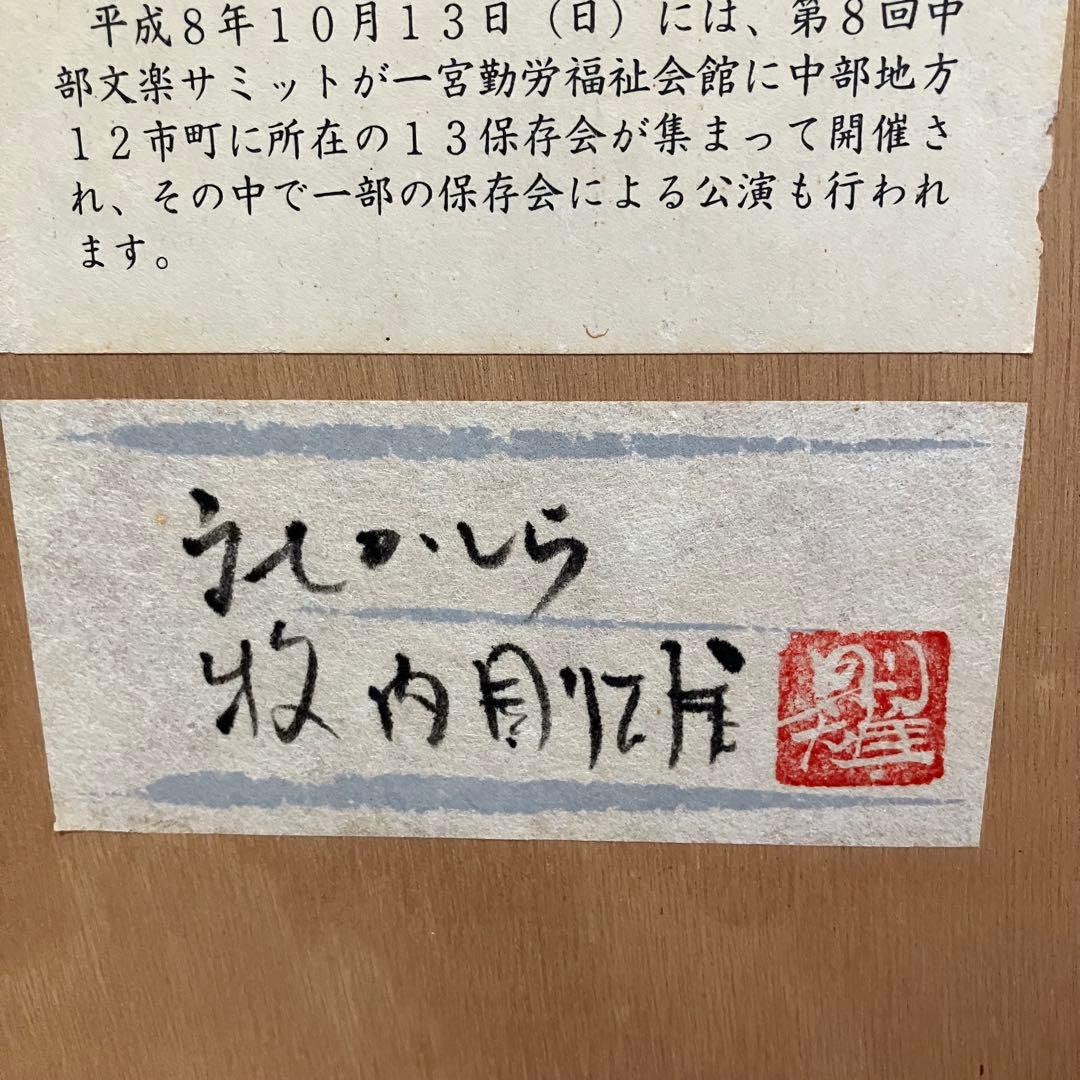 平成8年10月13日（日）には、第8回中
部文楽サミットが一宮勤労福祉会館に中部地方
12市町に所在の13保存会が集まって開催さ
れ、その中で一部の保存会による公演も行われ
ます。
かしら
牧内剛